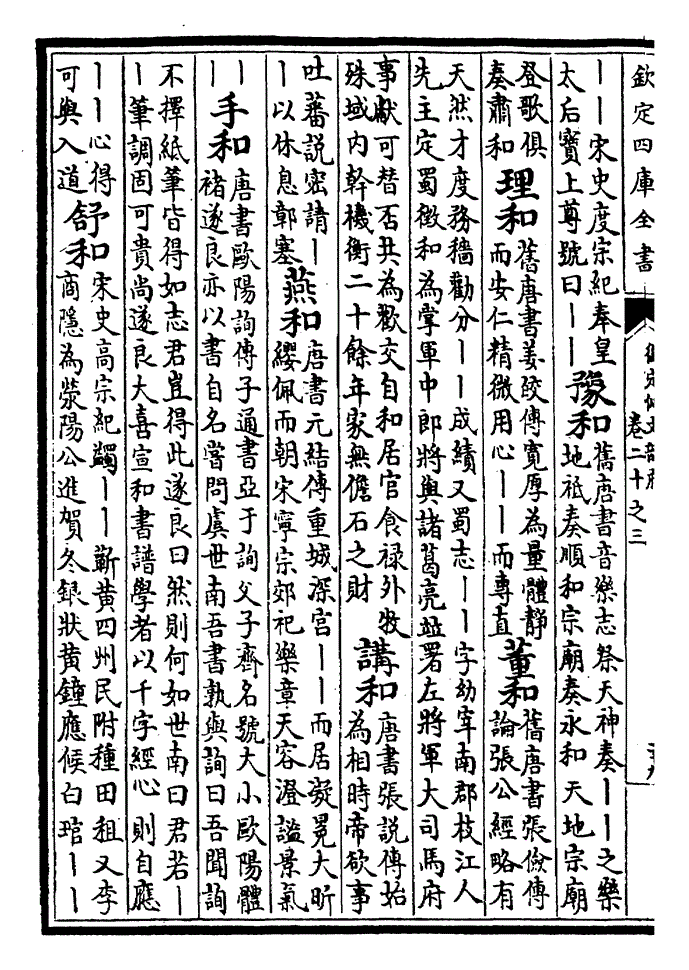 欽定四庫全書
御定佩文韻府
卷二十之三
丨丨宋史度宗紀奉皇
太后寶上尊號曰丨丨
豫和
舊唐書音樂志祭天神奏丨丨之樂
地祇奏順和宗廟奏永和天地宗廟
登歌俱
奏肅和
理和
舊唐書姜皎傳寛厚為量體靜
而安仁精微用心丨丨而專直
董和
舊唐書張儉傳
論張公經略有
天然才度務穡勸分丨丨成績又蜀志丨丨字幼宰南郡枝江人
先主定蜀徵和為掌軍中郎將與諸葛亮竝署左將軍大司馬府
事獻可替否共為歡交自和居官食禄外牧
殊域内幹機衡二十餘年家無儋石之財
講和
唐書張說傳始
為相時帝欲事
吐蕃說密請丨
丨以休息鄣塞
燕和
唐書元結傳重城深宫丨丨而居凝冕大昕
纓佩而朝宋寧宗郊祀樂章天容澄謐景氣
丨
丨
手和
唐書歐陽詢傳子通書亞于詢父子齊名號大小歐陽體
褚遂良亦以書自名嘗問虞世南吾書孰與詢曰吾聞詢
不擇紙筆皆得如志君豈得此遂良曰然則何如世南曰君若丨
丨筆調固可貴尚遂良大喜宣和書譜學者以千字經心則自應
丨丨心得
可與入道
舒和
宋史高宗紀蠲丨丨蘄黄四州民附種田租又李
商隱為滎陽公進賀冬銀狀黄鐘應候白琯丨丨